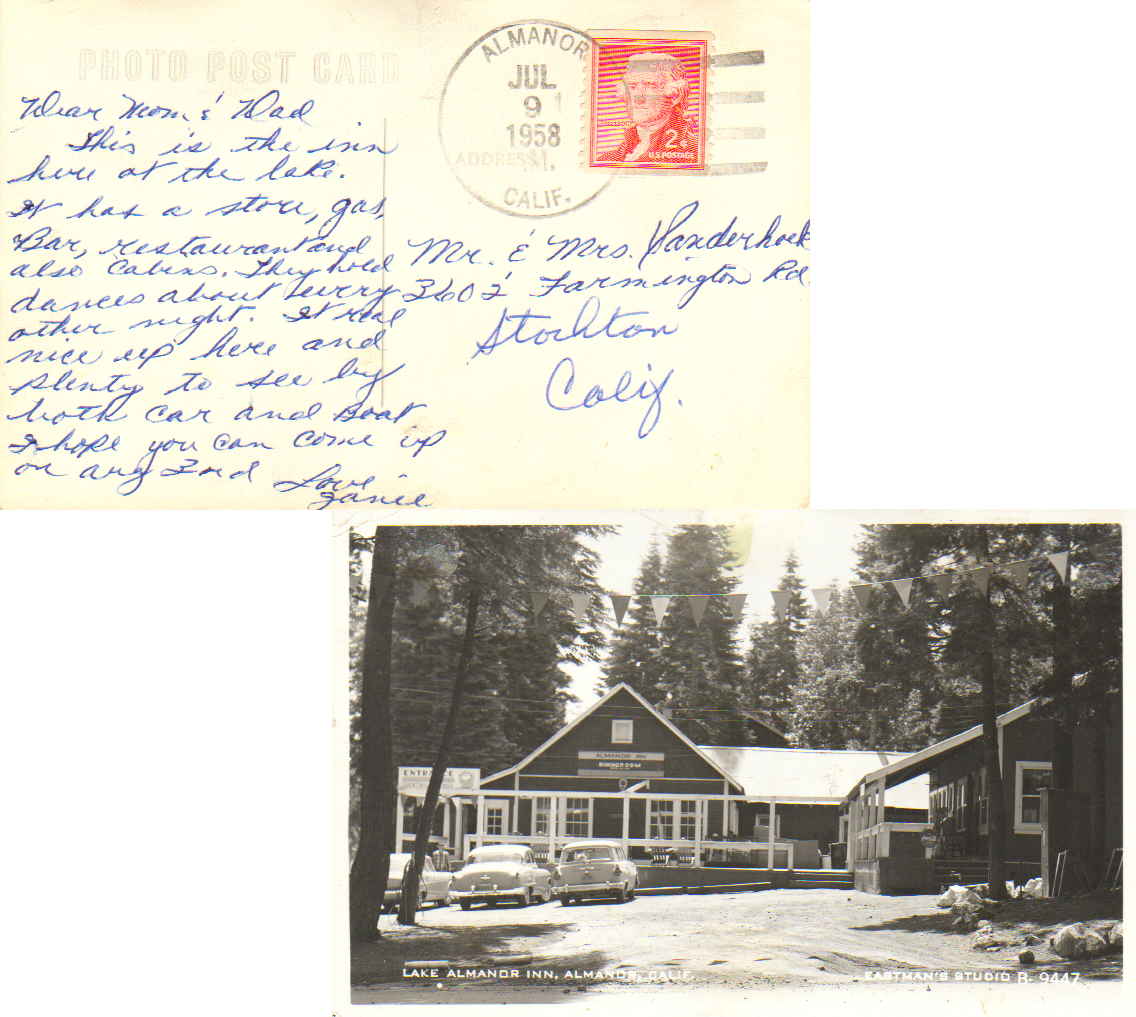 PHOTO POST CARD
ALMANOR
JUL
9
1958
M.
CALIF.
ADDRESS
2¢
U.S. POSTAGE
Dear Mom & Dad
This is the inn
here at the lake.
It has a store, gas,
Bar, restaurant and
also Cabins. They hold
dances about every
other night. It real
nice up here and
plenty to see by
both car and Boat
I hope you can come up
on aug 2nd
Love
Janie
Mr. & Mrs. Vanderhoek
3602 Farmington Rd.
Stockton
Calif.
ALMANOR INN
DINING ROOM
ENTRANCE
LAKE ALMANOR INN, ALMANOR, CALIF.
EASTMAN'S STUDIO B-9447